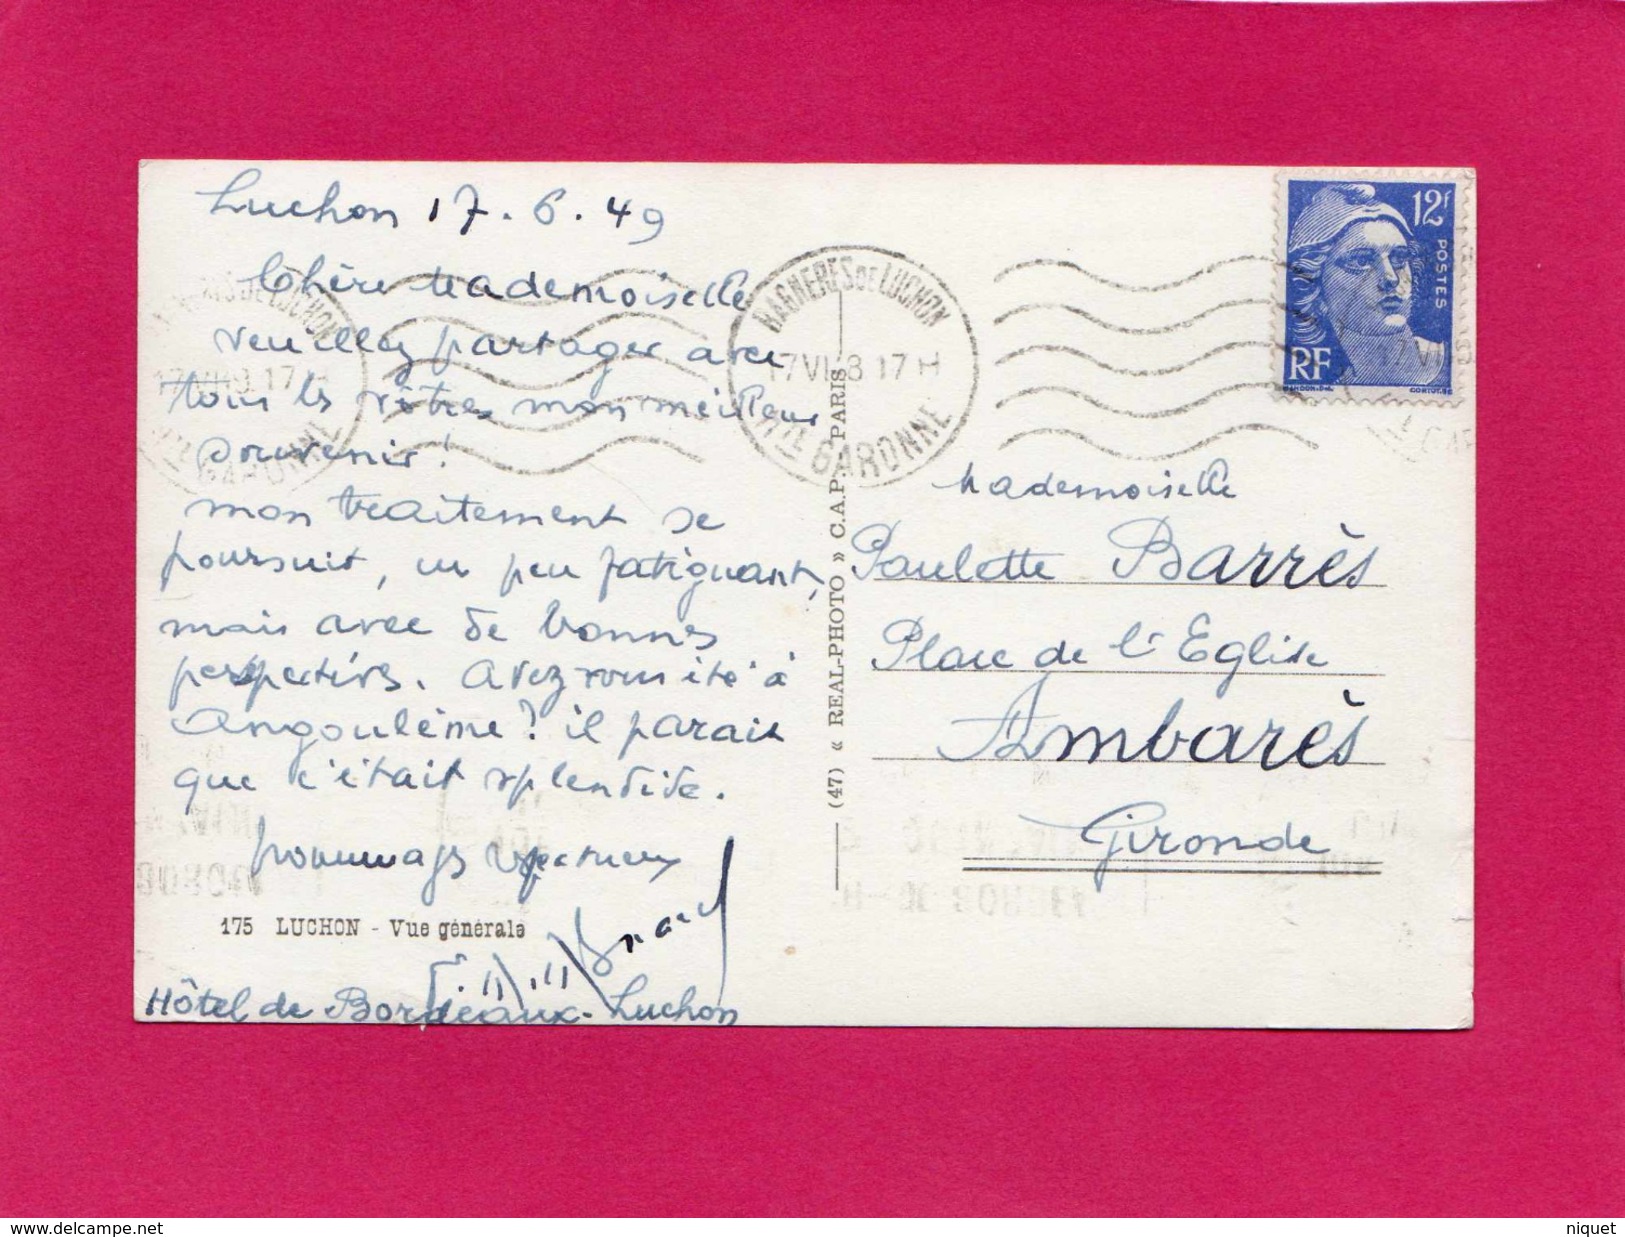 Luchon 17.6.49
Chère Mademoiselle
veuillez partager avec
tous les vôtres mon meilleur
souvenir!
mon traitement se
poursuit, un peu fatiguant,
mais avec de bonnes
perspectives. Avez vous été à
Angoulême? il parait
que c'était splendide.
hommages respectueux
175 LUCHON - Vue générale
Hôtel de Bordeaux. Luchon
(47) « REAL-PHOTO » C.A.P. PARIS
BAGNERES DE LUCHON
17 VI 8 17 H
Hte GARONNE
12f
POSTES
RF
Mademoiselle
Paulette Barrès
Place de l'Eglise
Ambarès
Gironde
www.delcampe.net
niquet